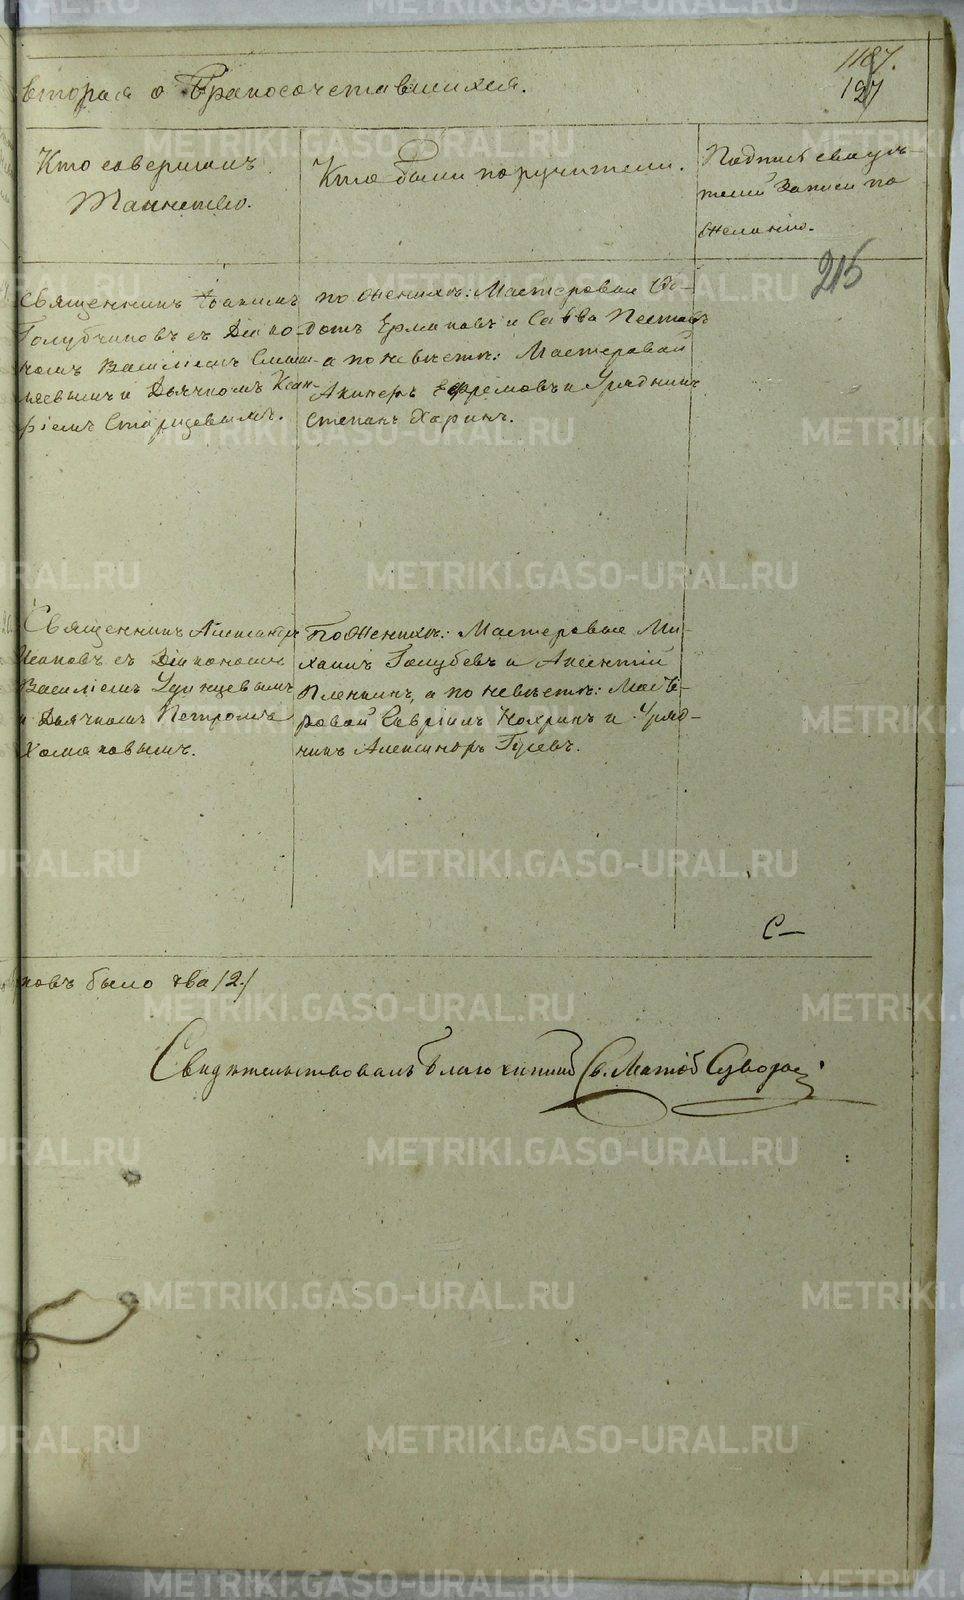 1187.
127
вторая о Бракосочетавшихся.
Кто совершалъ
Таинство.
Кто были поручители.
Подпись свидѣ-
телей записи по
желанію.
215
Священникъ Іоакимъ
Голубчиковъ съ Діако-
номъ Василіемъ
и Дьячкомъ
Старцевымъ.
по женихѣ: Мастеровые Ѳе-
дотъ Ермаковъ и Савва Пестовъ
а по невѣстѣ: Мастеровой
Ефремовъ и Урядникъ
Степанъ Харинъ.
Священникъ Александръ
съ Діакономъ
Василіемъ Удинцевымъ
и Дьячкомъ Петромъ
Хомяковымъ.
По женихѣ: Мастеровые Ми-
хаилъ Голубевъ и Аксентій
Пленкинъ, а по невѣстѣ: Масте-
ровой Гавріилъ Кокринъ и Уряд-
никъ Александръ Гусевъ.
С—
ковъ было два /2/
Свидѣтельствовалъ Благочинный Св. Матѳій Суворовъ
METRIKI.GASO-URAL.RU